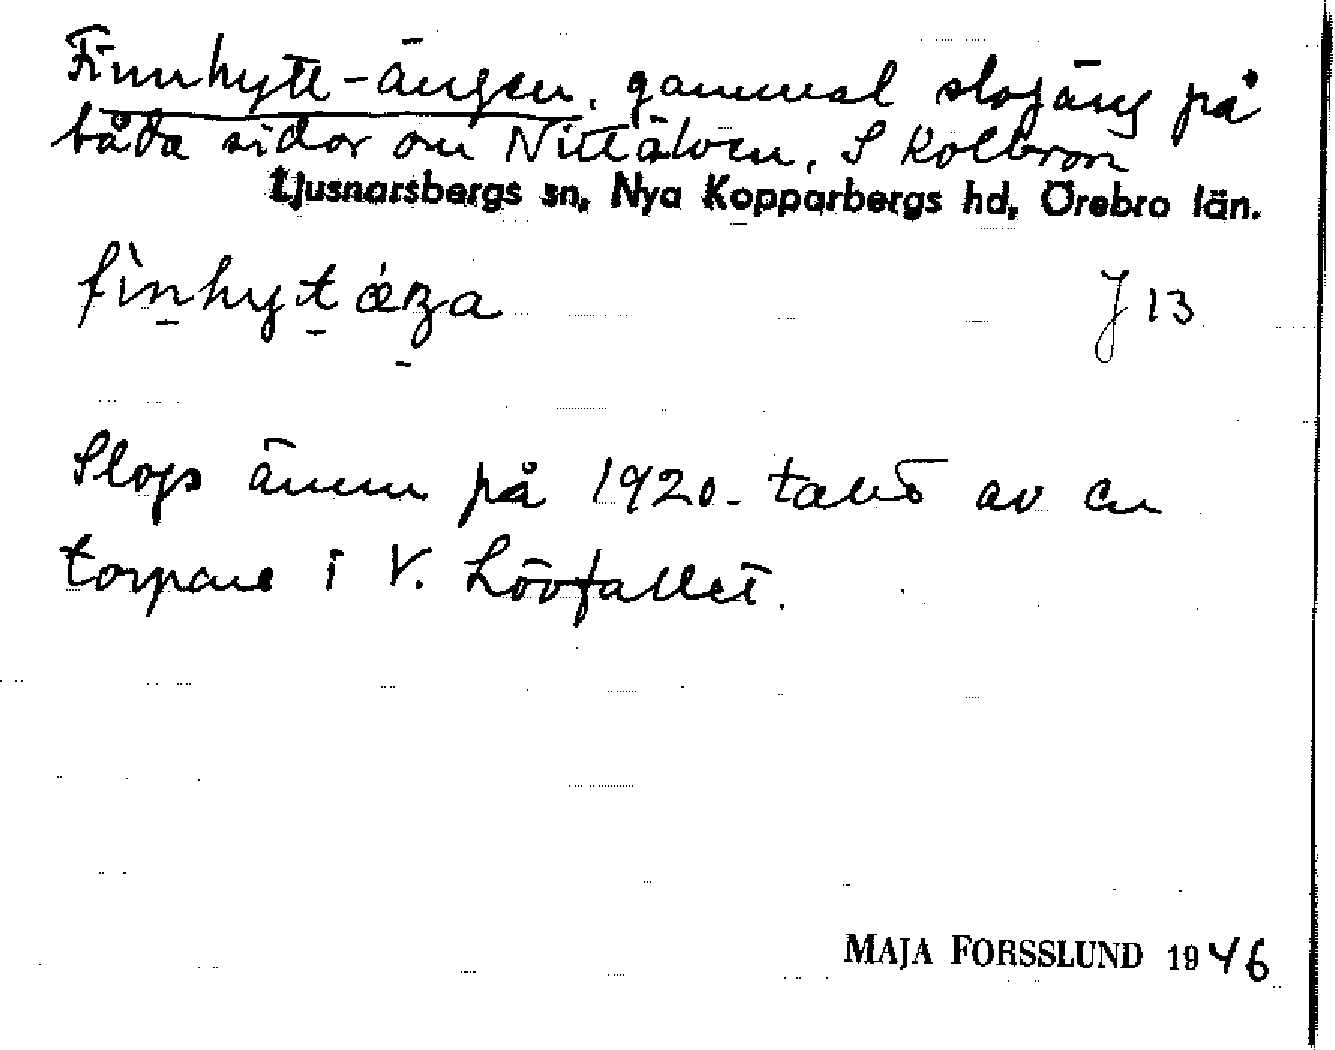 Finnhytt-ängen, gammal slogäng på
båda sidor om Nittälven, S Kolbron
Ljusnarsbergs sn, Nya Kopparbergs hd, Örebro län.
J 13
Slogs ännu på 1920-talet av en
torpare i V. Lövfallet.
MAJA FORSSLUND 1946